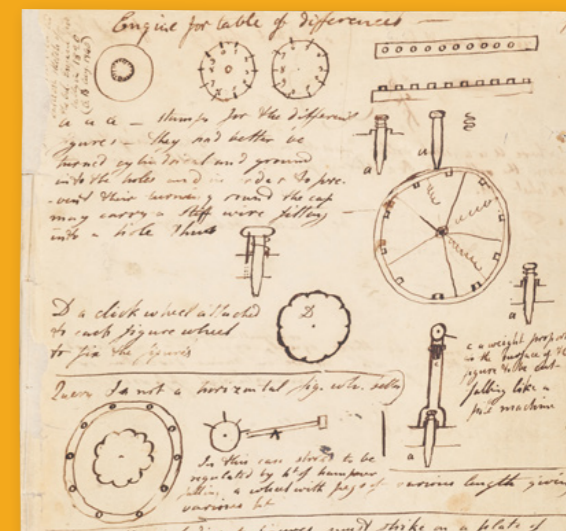 Engine for table of differences —
a a a — stumps for the different
figures — they had better be
turned cylindrical and ground
into the holes and in order to pre-
-vent their turning round the cap
may carry a stiff wire fitting
into a hole thus
a
a
a
D a click wheel attached
to each figure wheel
to fix the figures
D
c a weight
in the surface of the
figure to be cut
falling like a
pile machine
c
a
Quere Is not a horizontal fig. wh. better
A
In this case stroke to be
regulated by ht of hammer
falling, a wheel with pegs of various length giving
various ht
must strike on a plate of